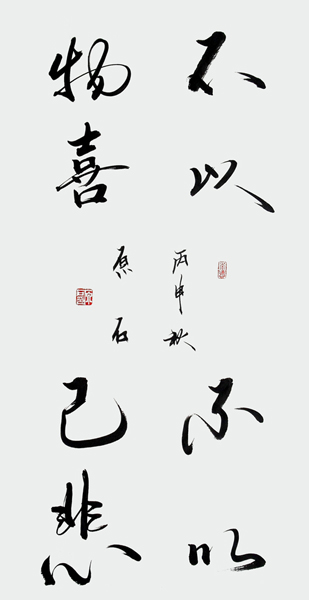 不以
物喜
不以
己悲
丙申秋
原石